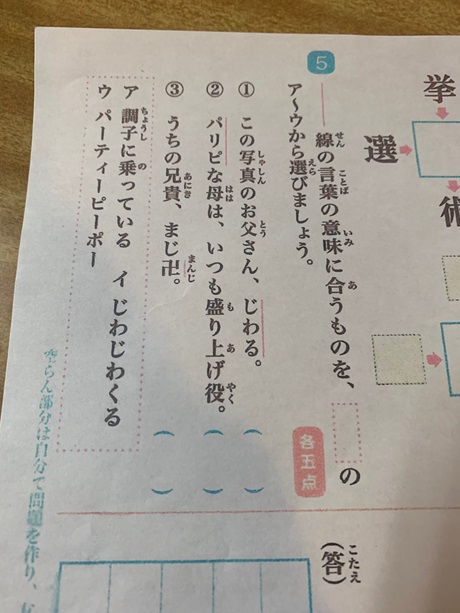 挙
選
術
5
――線の言葉の意味に合うものを、□の
ア～ウから選びましょう。
各五点
① この写真のお父さん、じわる。（　）
② パリピな母は、いつも盛り上げ役。（　）
③ うちの兄貴、まじ卍。（　）
ア 調子に乗っている　イ じわじわくる
ウ パーティーピーポー
（答）
空らん部分は自分で問題を作り、